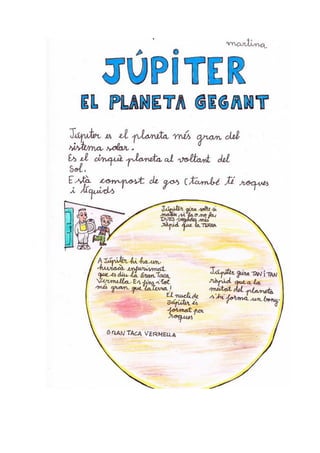 martina
JÚPITER
EL PLANETA GEGANT
Júpiter es el planeta més gran del
sistema solar.
Es el cinquè planeta al voltant del
Sol.
Està compost de gas (també té roques
i líquids
Júpiter gira volte a
DUES vegades més
Ràpid que la TERRA
A Júpiter hi ha un
huracà enfurismat
que es diu la Gran Taca
Vermella. Es fins i tot
més gran que la terra!
Júpiter gira TAN i TAN
ràpid que a la
meitat del planeta
s'hi forma un bony.
El nucli de
Júpiter és
format per
roques
GRAN TACA VERMELLA